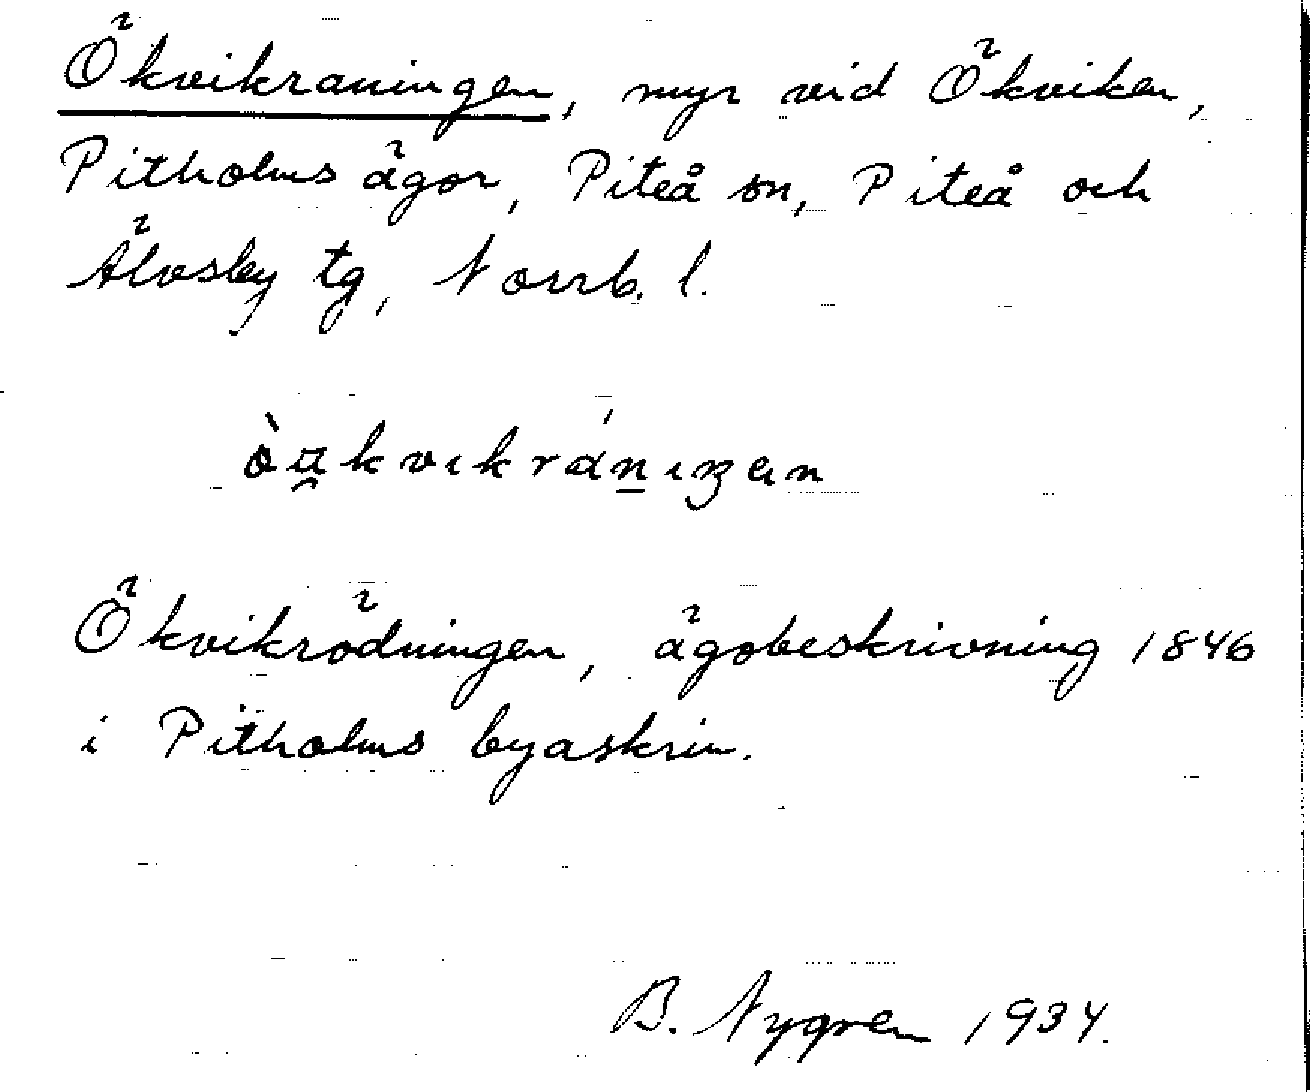 Ökvikraningen, myr vid Ökviken,
Pitholms ägor, Piteå sn, Piteå och
Älvsby tg, Norrb. l.
Ökvikrödningen, ägobeskrivning 1846
i Pitholms byaskrin.
B. Nygren 1934.